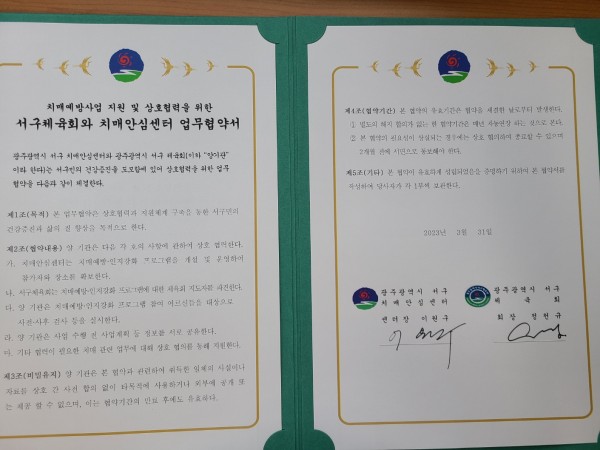 치매예방사업 지원 및 상호협력을 위한
서구체육회와 치매안심센터 업무협약서
광주광역시 서구 치매안심센터와 광주광역시 서구 체육회(이하 "양기관"
이라 한다)는 서구민의 건강증진을 도모함에 있어 상호협력을 위한 업무
협약을 다음과 같이 체결한다.
제1조(목적) 본 업무협약은 상호협력과 지원체계 구축을 통한 서구민의
건강증진과 삶의 질 향상을 목적으로 한다.
제2조(협약내용) 양 기관은 다음 각 호의 사항에 관하여 상호 협력한다.
가. 치매안심센터는 치매예방·인지강화 프로그램을 개설 및 운영하며
참가자와 장소를 확보한다.
나. 서구체육회는 치매예방·인지강화 프로그램에 대한 체육회 지도자를 파견한다.
다. 양 기관은 치매예방·인지강화 프로그램 참여 어르신들을 대상으로
사전·사후 검사 등을 실시한다.
라. 양 기관은 사업 수행 전 사업계획 등 정보를 서로 공유한다.
마. 기타 협력이 필요한 치매 관련 업무에 대해 상호 협의를 통해 지원한다.
제3조(비밀유지) 양 기관은 본 협약과 관련하여 취득한 일체의 사실이나
자료를 상호 간 사전 합의 없이 타목적에 사용하거나 외부에 공개 또
는 제공 할 수 없으며, 이는 협약기간의 만료 후에도 유효하다.
제4조(협약기간) 본 협약의 유효기간은 협약을 체결한 날로부터 발생한다.
① 별도의 해지 합의가 없는 한 협약기간은 매년 자동연장 하는 것으로 본다.
② 본 협약의 필요성이 상실되는 경우에는 상호 협의하여 종료할 수 있으며
2개월 전에 서면으로 통보해야 한다.
제5조(기타) 본 협약이 유효하게 성립되었음을 증명하기 위하여 본 협약서를
작성하여 당사자가 각 1부씩 보관한다.
2023년 3월 31일
광주광역시 서구
치매안심센터
센터장 이원구
광주광역시 서구
체육회
회장 정현균